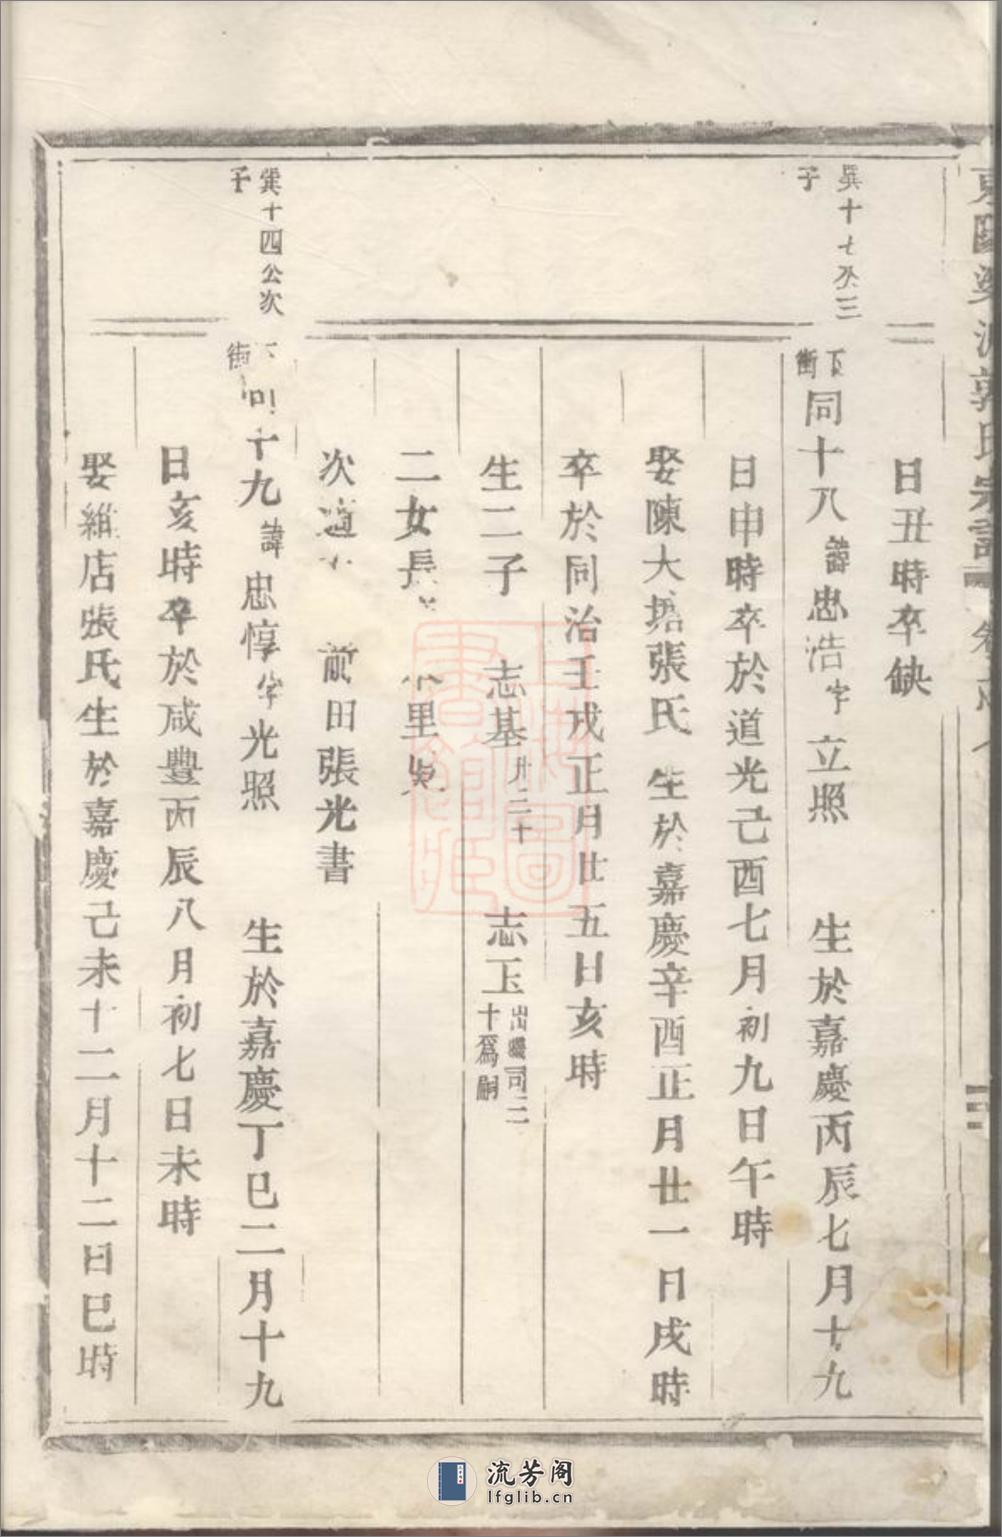 氏宗譜
日丑時卒缺
巽十七公三
子
下
街
同十八諱忠浩字立照 生於嘉慶丙辰七月十九
日申時卒於道光己酉七月初九日午時
娶陳大塘張氏 生於嘉慶辛酉正月廿一日戌時
卒於同治壬戌正月廿五日亥時
生二子 志基 志玉出嗣同三十爲嗣
二女長 里
次適 前田張光書
巽十四公次
子
街
十九諱忠惇字光照 生於嘉慶丁巳二月十九
日亥時卒於咸豐丙辰八月初七日未時
娶維店張氏生於嘉慶己未十二月十二日巳時
上海圖書館藏
流芳阁
lfglib.cn